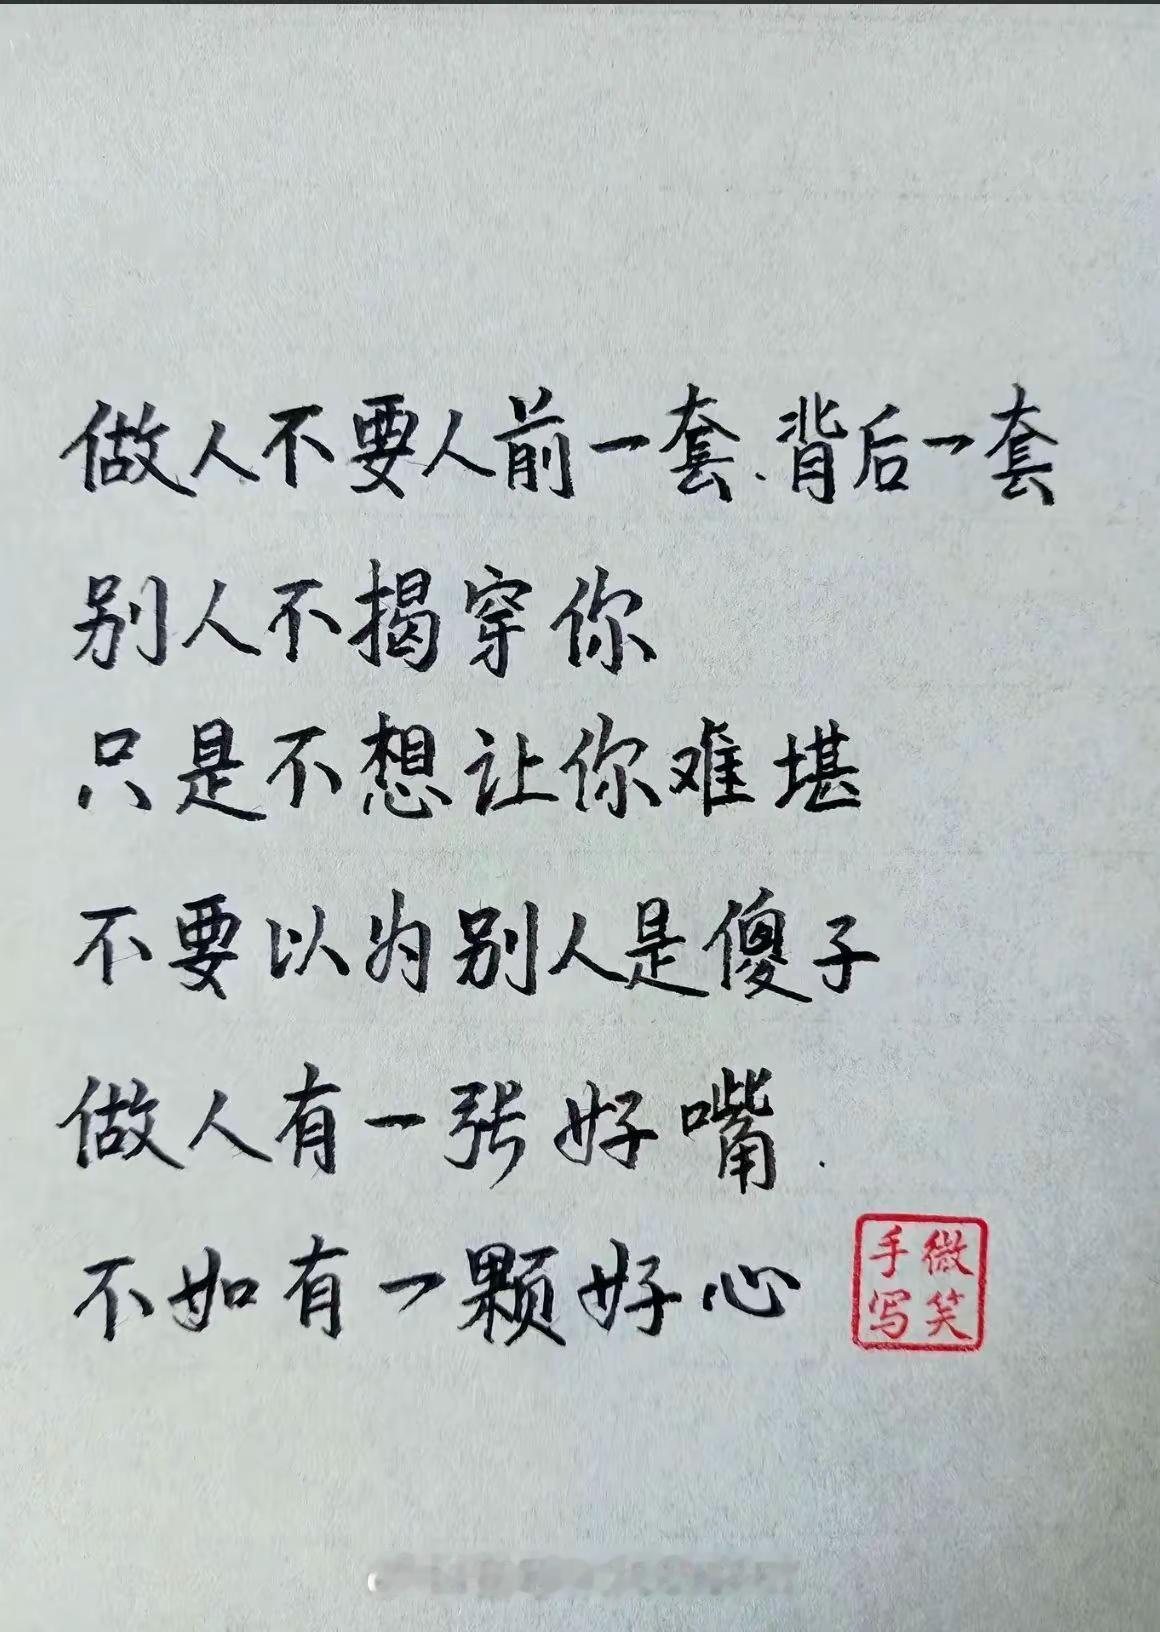 做人不要人前一套、背后一套
别人不揭穿你
只是不想让你难堪
不要以为别人是傻子
做人有一张好嘴.
不如有一颗好心
微笑
手写